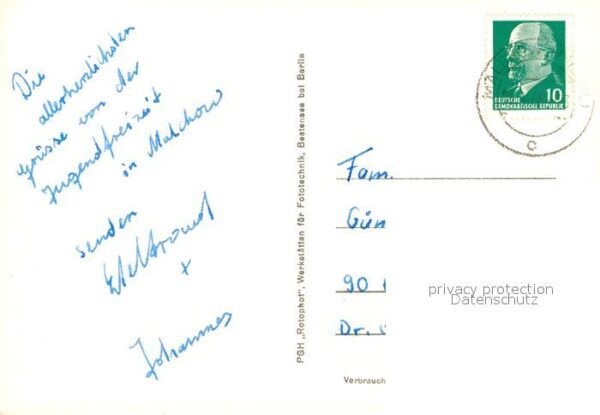 Die
allerherzlichsten
Grüsse von der
Jugendfreizeit
in Malchow
senden
+
Johannes
PGH „Rotophot", Werkstätten für Fototechnik, Bestensee bei Berlin
10
DEUTSCHE
DEMOKRATISCHE REPUBLIK
c
Fam.
Gün
90
Dr.
privacy protection
Datenschutz
Verbrauch